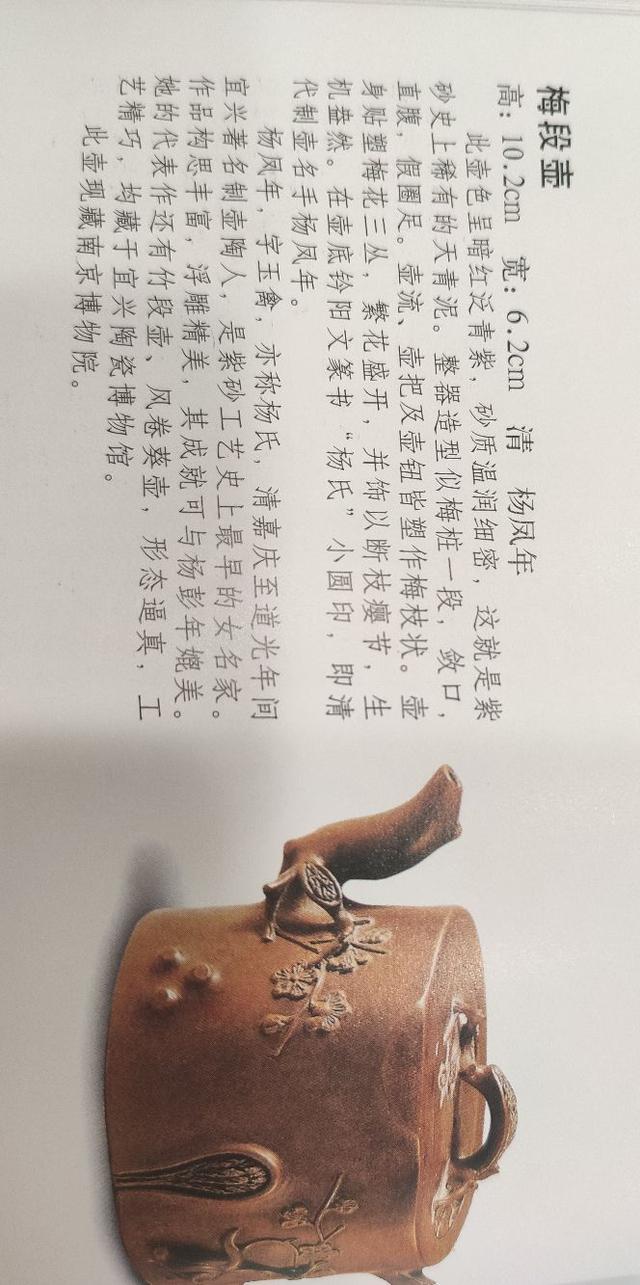 梅段壶
高：10.2cm 宽：6.2cm 清 杨凤年
此壶色呈暗红泛青紫，砂质温润细密，这就是紫
砂史上稀有的天青泥。整器造型似梅桩一段，敛口，
直腹，假圈足。壶流、壶把及壶钮皆塑作梅枝状。壶
身贴塑梅花三丛，繁花盛开，并饰以断枝瘿节，生
机盎然。在壶底钤阳文篆书“杨氏”小圆印，即清
代制壶名手杨凤年。
杨凤年，字玉禽，亦称杨氏，清嘉庆至道光年间
宜兴著名制壶陶人，是紫砂工艺史上最早的女名家。
作品构思丰富，浮雕精美，其成就可与杨彭年媲美。
她的代表作还有竹段壶、风卷葵壶，形态逼真，工
艺精巧，均藏于宜兴陶瓷博物馆。
此壶现藏南京博物院。